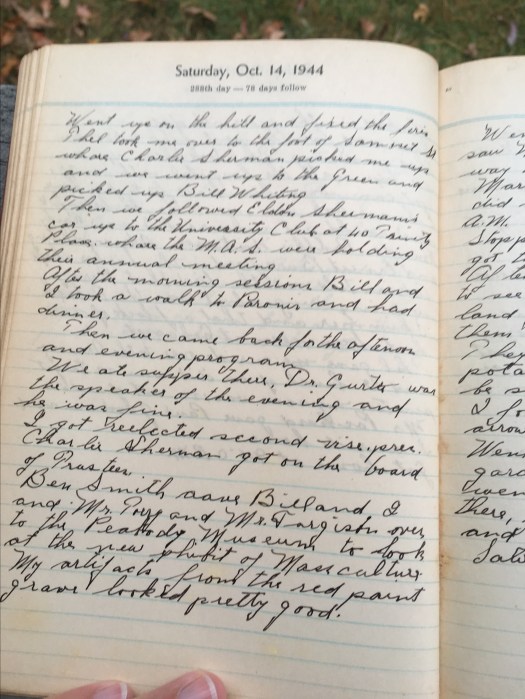 Saturday, Oct. 14, 1944
288th day — 78 days follow
Went up on the hill and fixed the fire.
Thel took me over to the foot of Summit St
where Charlie Sherman picked me up
and we went up to the Green and
picked up Bill Whiting
Then we followed Eldon Shermans
car up to the University Club at 40 Trinity
Place. where the M.A.S. were holding
their annual meeting
After the morning sessions Bill and
I took a walk to and had
dinner.
Then we came back for the afternoon
and evening program
We ate supper there, Dr. was
the speaker of the evening and
he was fine.
I got reelected second vise. pres.
Charlie Sherman got on the board
of Trustees
Ben Smith Bill and I
and Mr. and Mr. over
to the Peabody Museum to look
at the new of Mass culture
My artifacts from the red paint
grave looked pretty good.
We
saw
way
Mar
did
A.M.
got
Af
to see
land
them
They
pota
be s
I fo
arrow
Wen
gar
wen
there,
and